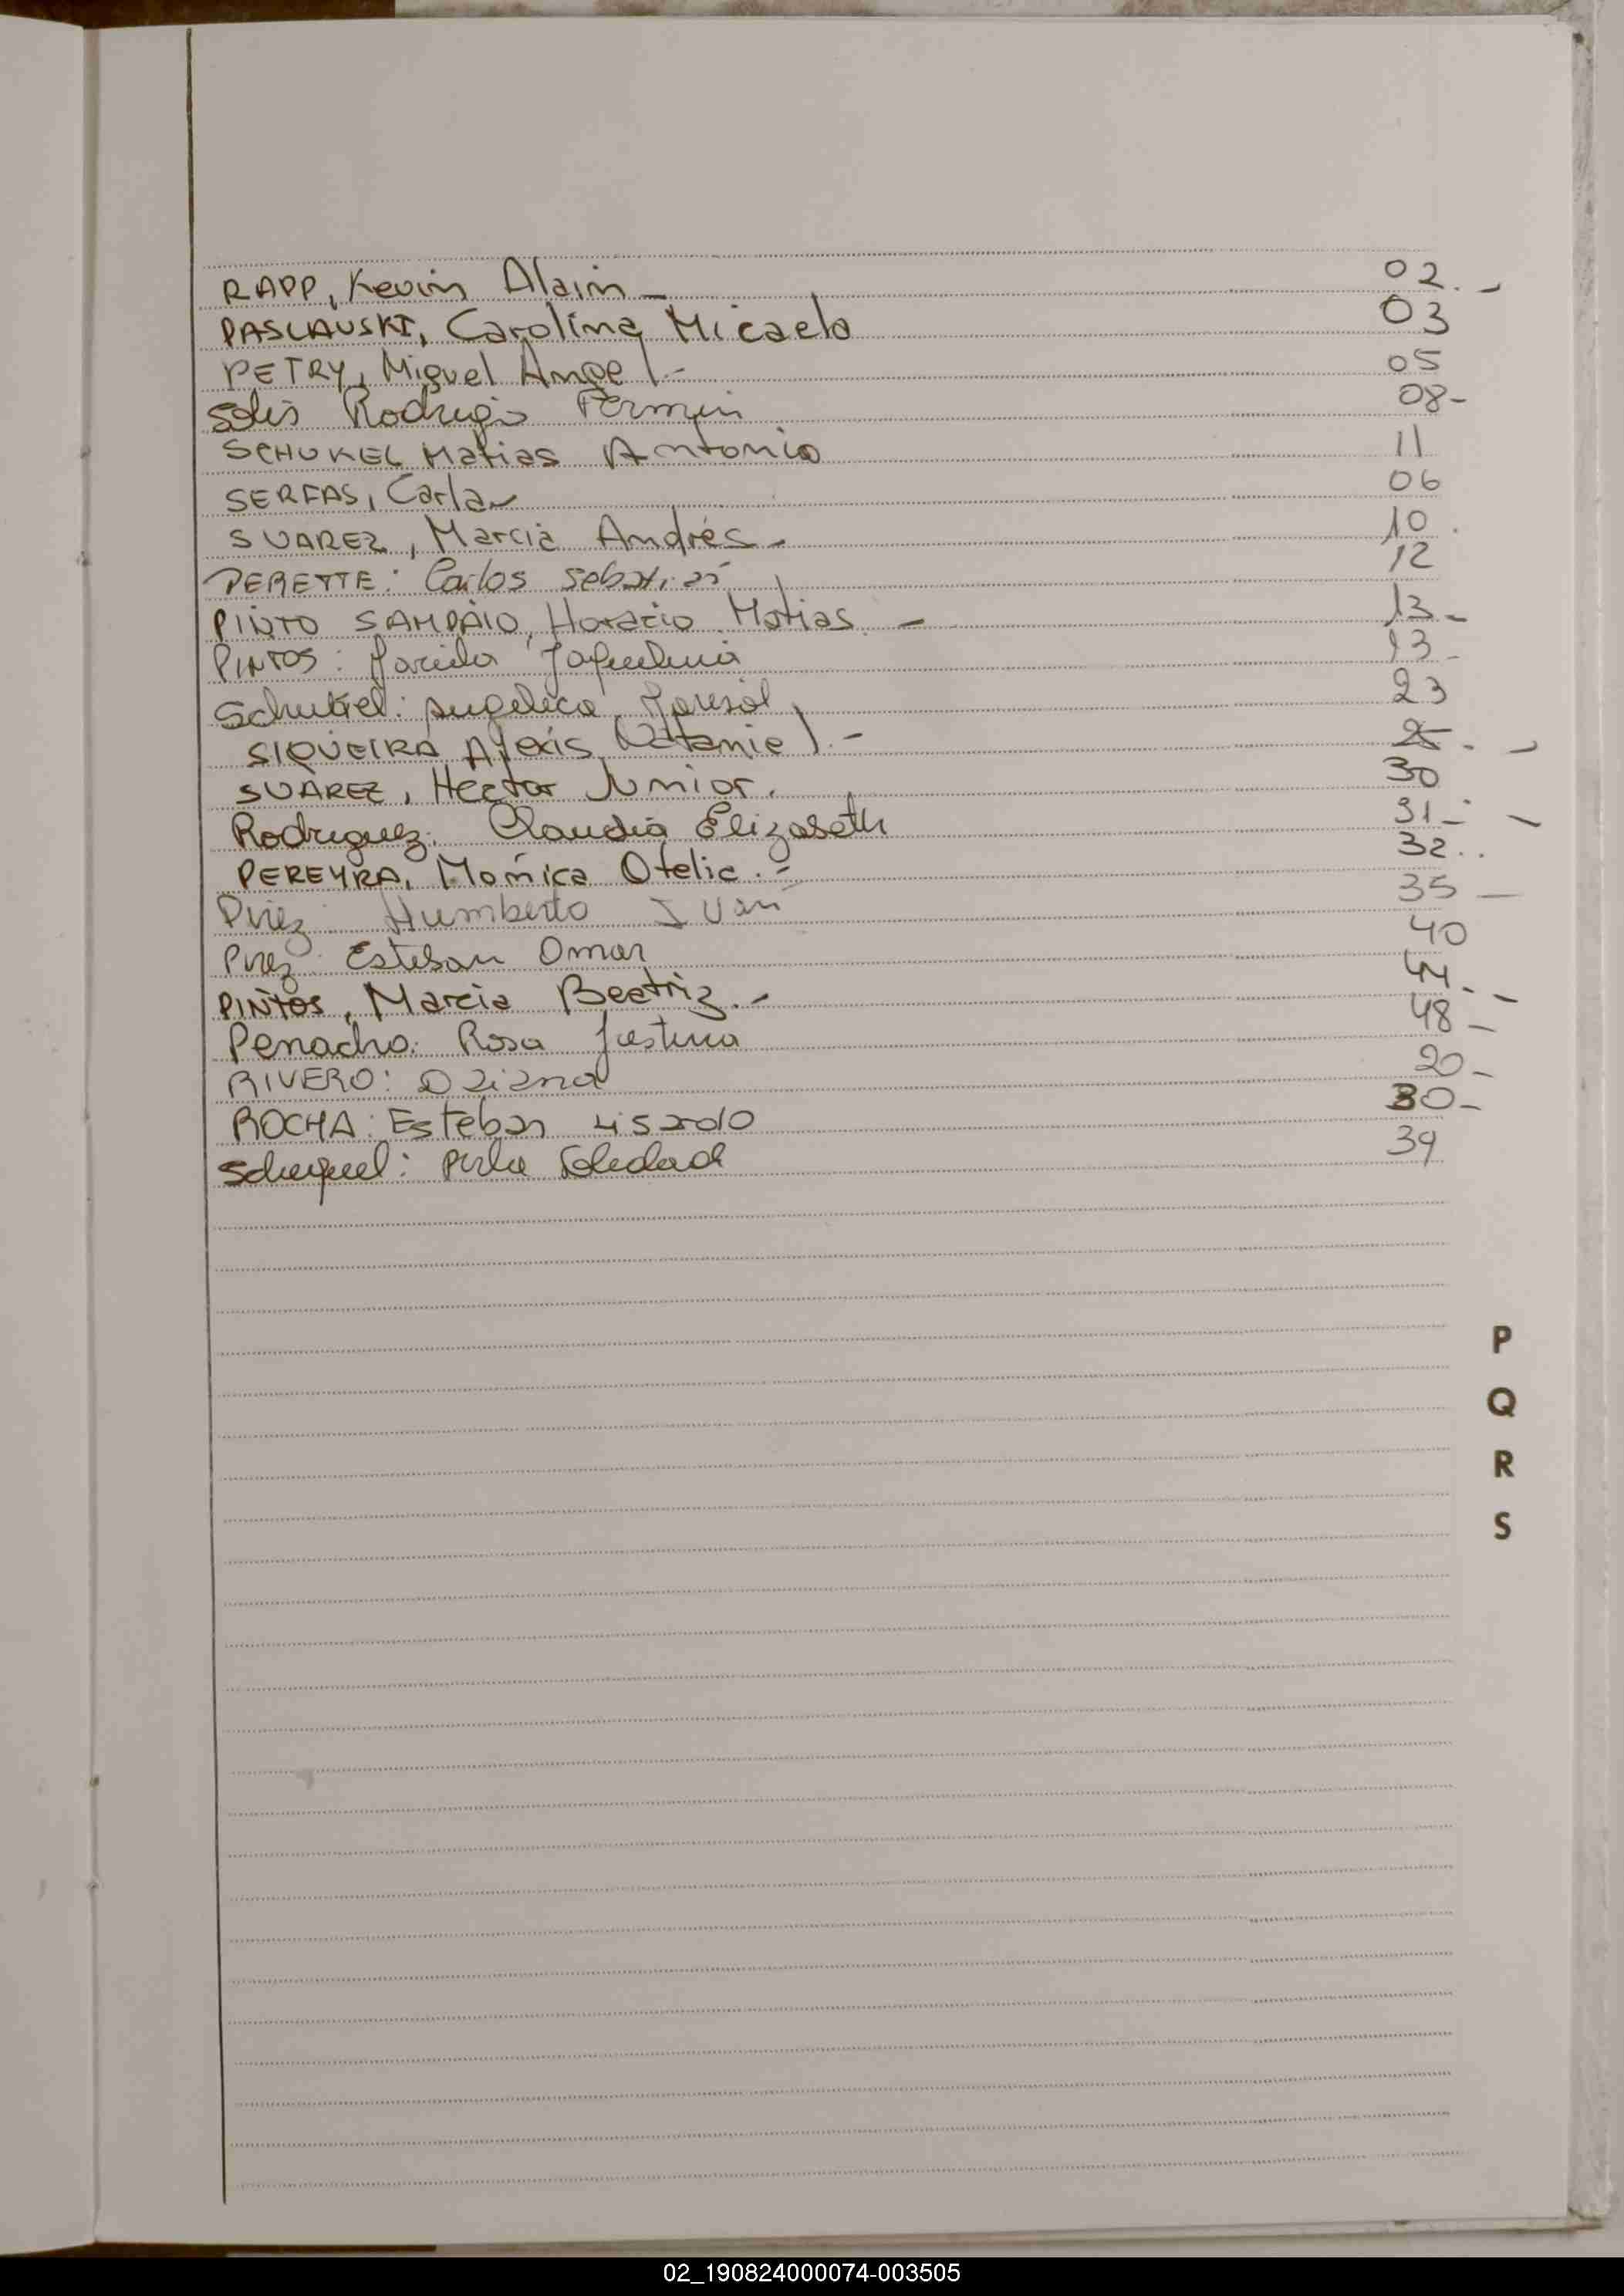 RAPP, Kevin Alain - 02. -
PASLAUSKI, Carolina Micaela 03
PETRY, Miguel Angel .- 05
Solis Rodrigo Fermin 08-
SCHUKEL Matias Antonio 11
SERFAS, Carla 06
SUAREZ, Marcia Andrés - 10.
PERETTE: Carlos Sebastián 12
PINTO SAMPAIO, Horacio Matias. - 13 -
PINTOS: Jaquelina 13 -
Schukel: Angelica Marisol 23
SIQUEIRA Alexis Natanie l .- 25. -
SUÁREZ, Héctor Junior. 30
Rodriguez: Claudia Elizabeth 31 - -
PEREYRA, Mónica Otelia .- 32..
Pirez: Humberto Iván 35 -
Pirez: Esteban Omar 40
PINTOS, Marcia Beatriz .- 44. -
Penacho: Rosa Justina 48 -
RIVERO: Daiana 20 -
ROCHA: Esteban Lisardo 30 -
Schequel: Perla Soledad 39
P
Q
R
S
02_190824000074-003505